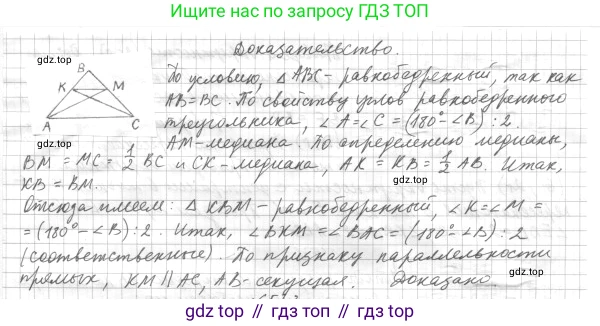 Ищите нас по запросу ГДЗ ТОП
gdz.top
Доказательство.
По условию, △ABC - равнобедренный, так как
AB=BC. По свойству углов равнобедренного
треугольника, ∠A=∠C = (180°-∠B) : 2.
AM-медиана. По определению медианы,
B
K
M
A
C
BM = MC = 1/2 BC и CK - медиана, AK = KB = 1/2 AB. Итак,
KB = BM.
Отсюда имеем: △ KBM - равнобедренный, ∠K = ∠M =
= (180° - ∠B) : 2. Итак, ∠BKM = ∠BAC = (180° - ∠B) : 2
(соответственные). По признаку параллельности
прямых, KM ∥ AC, AB-секущая. Доказано.
gdz.top
gdz.top
gdz.top
gdz.top
gdz.top
gdz.top // gdz.top // gdz.top